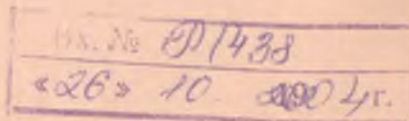 Вх. № Р1438
«26» 10 2004г.